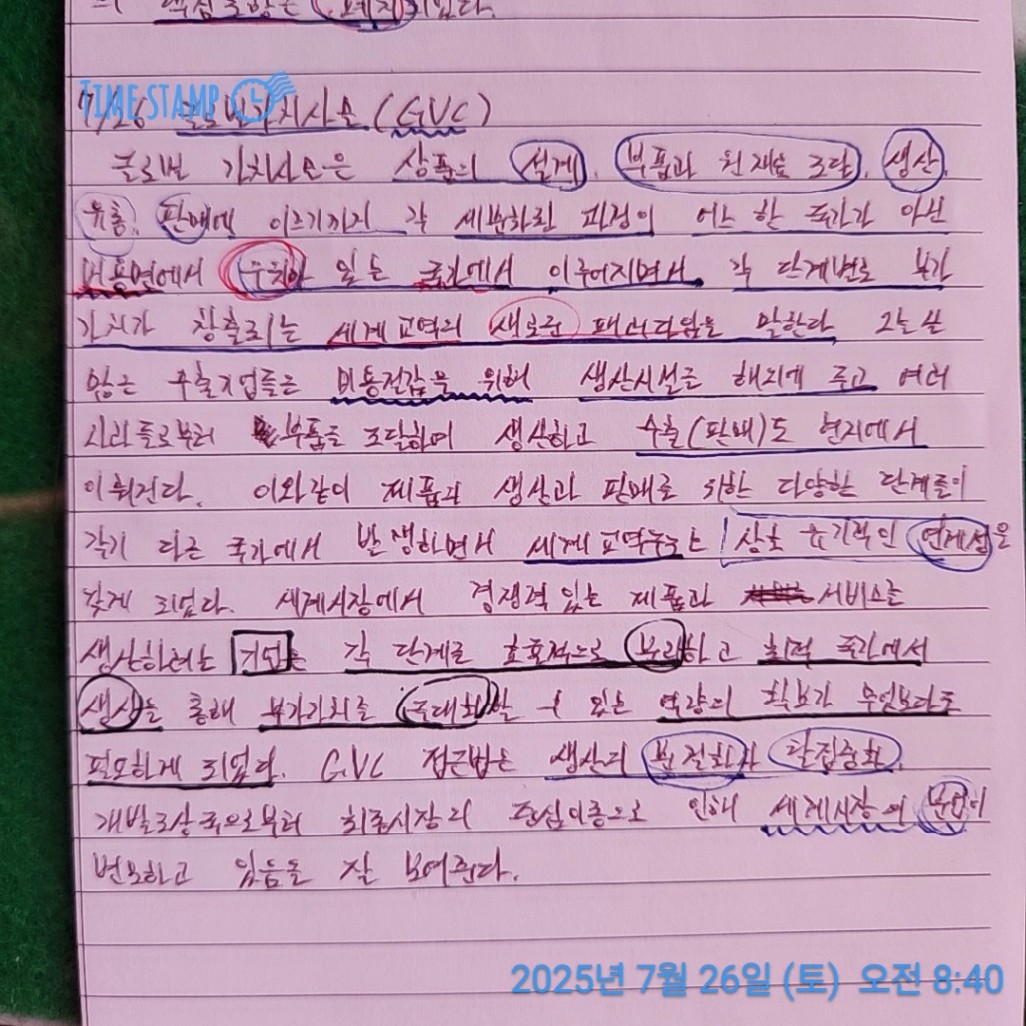 의 핵심 는 되었다.
TIMESTAMP
7/26 글로벌가치사슬(GVC)
글로벌 가치사슬은 상품의 설계, 부품과 원재료 조달, 생산,
유통, 판매에 이르기까지 각 세분화된 과정이 어느 한 국가가 아닌
비용면에서 우위가 있는 국가에서 이루어지면서, 각 단계별로 부가
가치가 창출되는 세계교역의 새로운 패러다임을 말한다. 오늘날
많은 수출기업들은 비용절감을 위해 생산시설을 해외에 두고 여러
나라들로부터 부품을 조달하여 생산하고 수출(판매)도 현지에서
이뤄진다. 이와같이 제품의 생산과 판매를 위한 다양한 단계들이
각기 다른 국가에서 발생하면서 세계교역구조는 상호 유기적인 연계성을
갖게 되었다. 세계시장에서 경쟁력 있는 제품과 서비스를
생산하려는 기업은 각 단계를 효율적으로 분리하고 최적 국가에서
생산을 통해 부가가치를 극대화할 수 있는 역량의 확보가 무엇보다도
필요하게 되었다. GVC 접근법은 생산의 분절화와 탈집중화,
개발도상국으로부터 최종시장의 중심이동으로 인해 세계시장의 분업이
변모하고 있음을 잘 보여준다.
2025년 7월 26일 (토) 오전 8:40